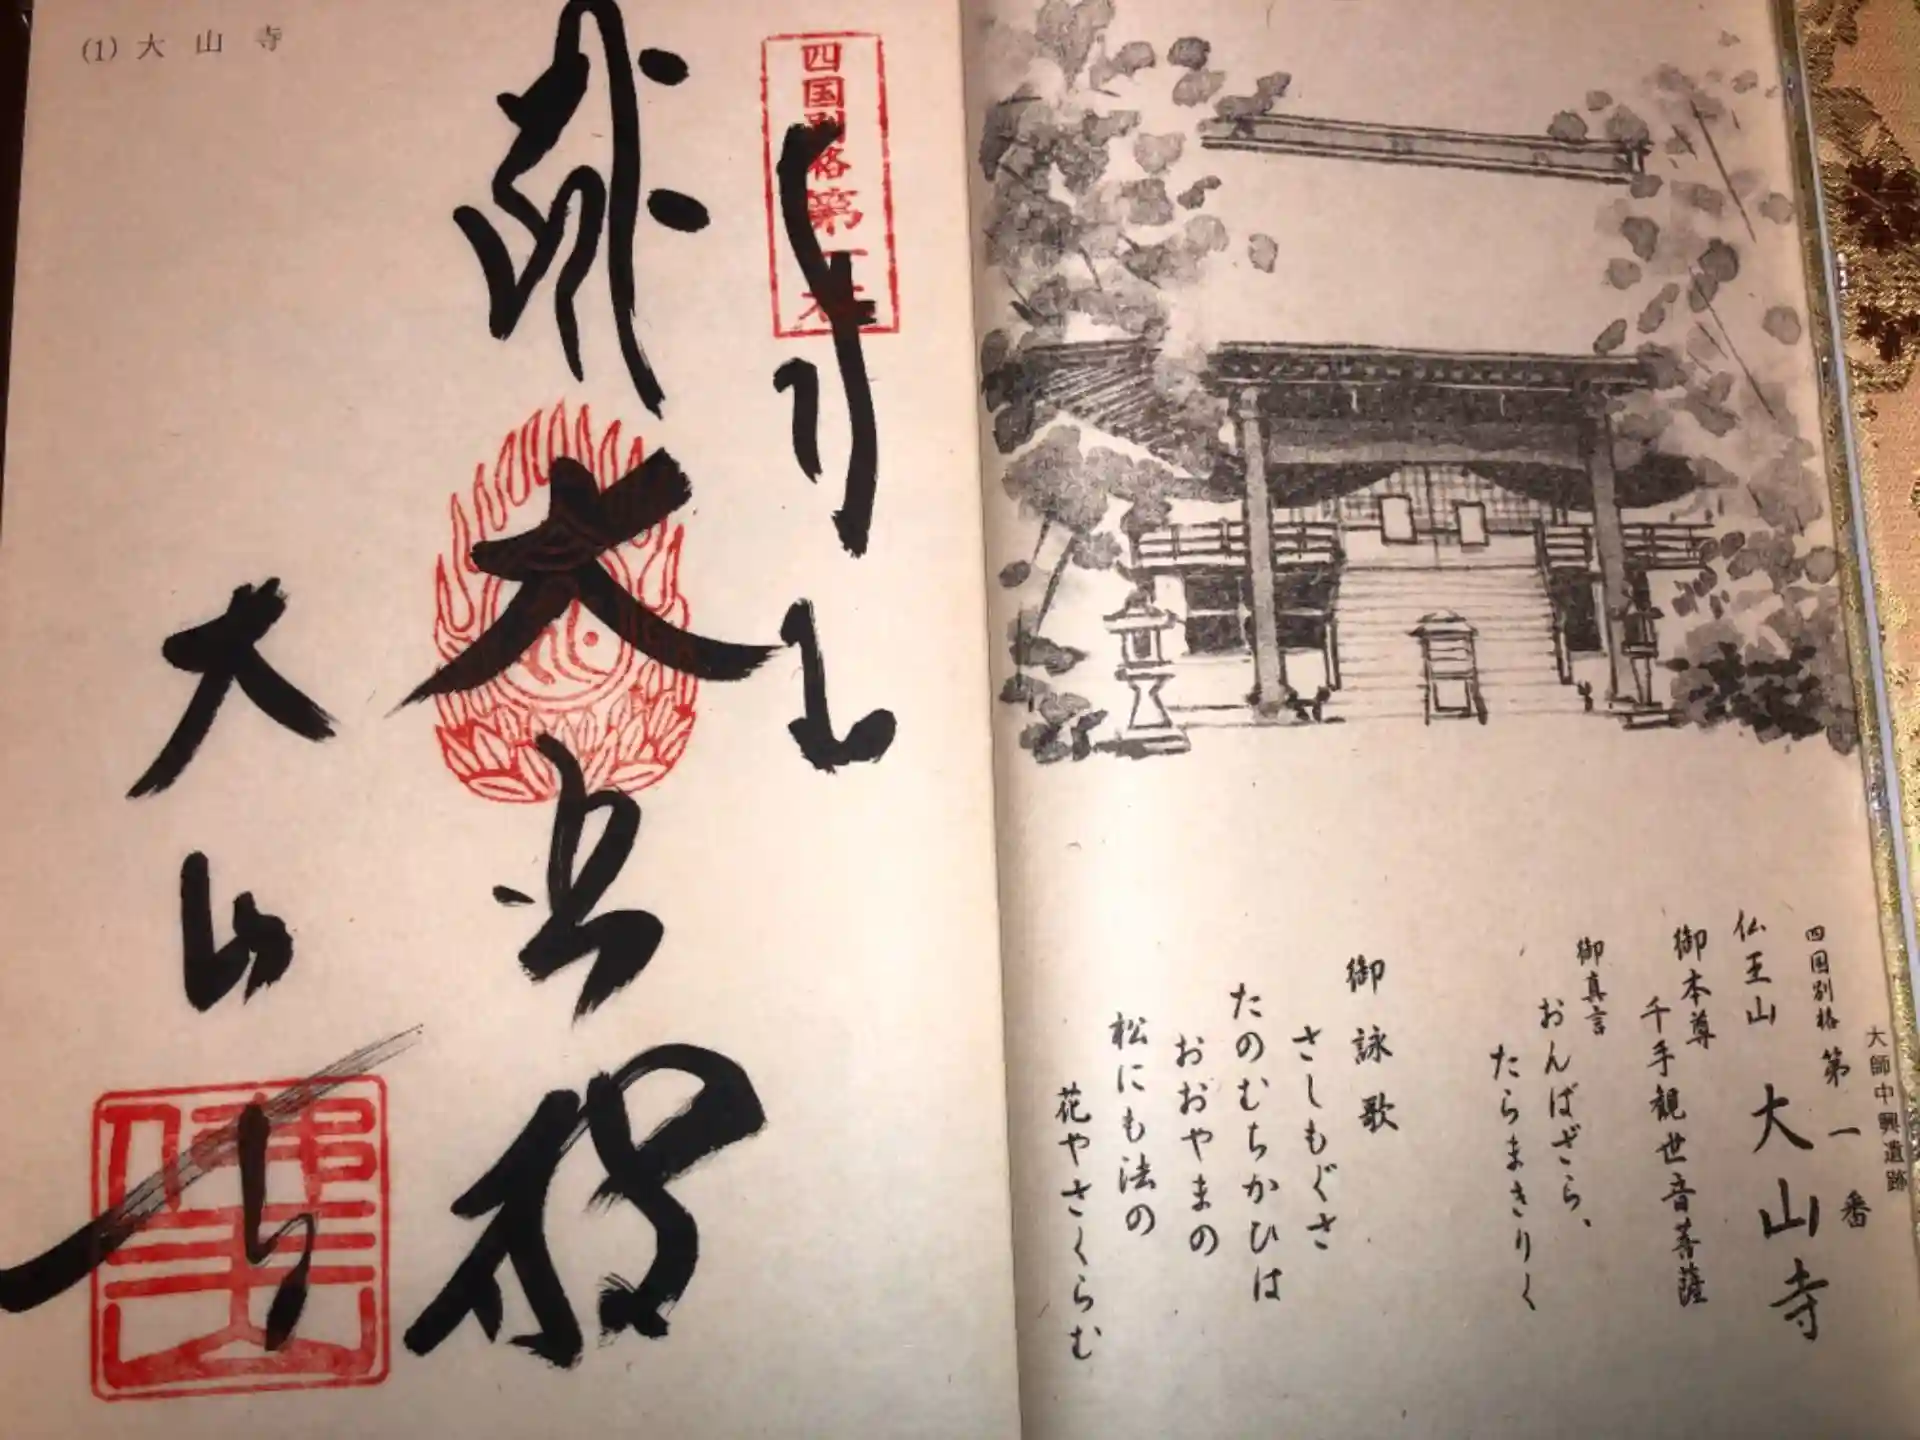 大師中興遺跡
四国別格 第一番
仏王山 大山寺
御本尊
千手観世音菩薩
御真言
おんばざら、
たらまきりく
御詠歌
さしもぐさ
たのむちかひは
おおやまの
松にも法の
花やさくらむ
(1) 大山寺
四国別格第一番
奉拝
大悲殿
大山寺